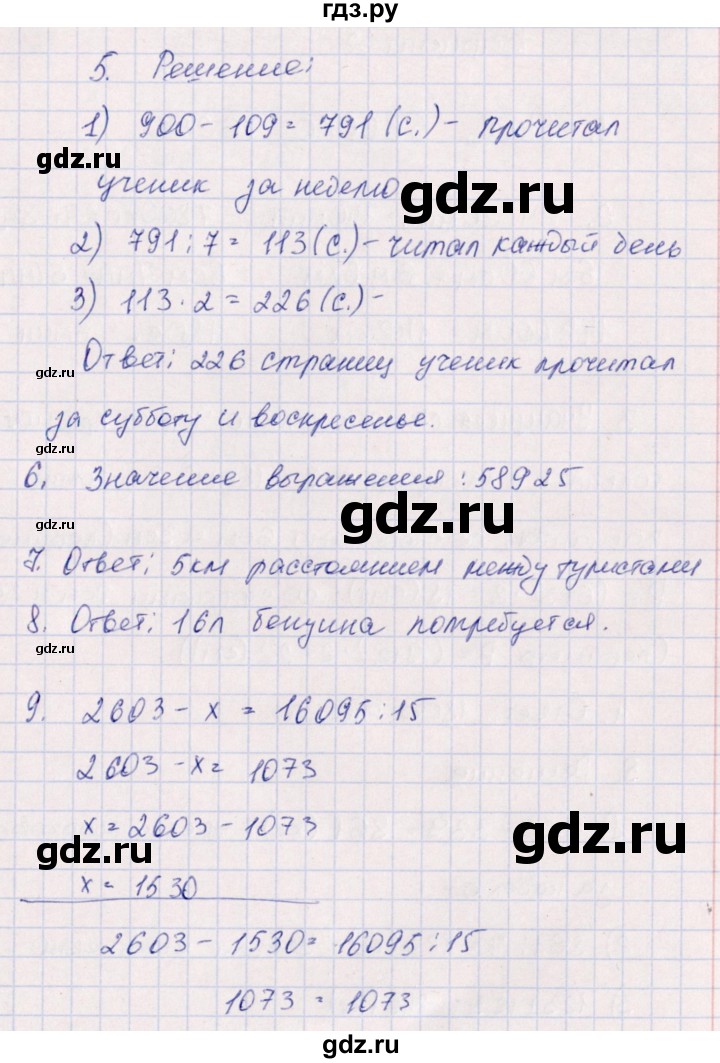 гдз.ру
5. Решение:
1) 900 - 109 = 791 (с.) - прочитал
gdz.ru
ученик за неделю
gdz.ru
2) 791 : 7 = 113 (с.) - читал каждый день
3) 113 · 2 = 226 (с.) -
Ответ: 226 страниц ученик прочитал
gdz.ru
за субботу и воскресенье.
gdz.ru
6. Значение выражения : 58925
gdz.ru
gdz.ru
7. Ответ: 5км расстоянием между туристами
8. Ответ: 16л бензина потребуется.
gdz.ru
9. 2603 - x = 16095 : 15
2603 - x = 1073
x = 2603 - 1073
gdz.ru
gdz.ru
x = 1530
2603 - 1530 = 16095 : 15
1073 = 1073
gdz.ru
gdz.ru